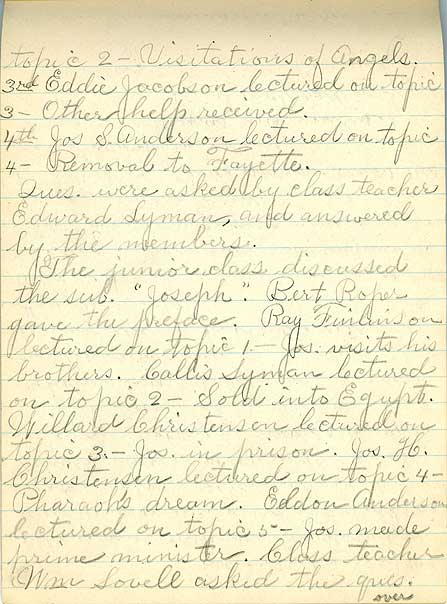 topic 2 - Visitations of Angels.
3rd Eddie Jacobson lectured on topic
3 - Other help received.
4th Jos S. Anderson lectured on topic
4 - Removal to Fayette.
Ques. were asked by class teacher
Edward Lyman, and answered
by the members.
The junior class discussed
the sub. "Joseph". Bert Roper
gave the preface. Ray Finlinson
lectured on topic 1 - Jos. visits his
brothers. Callis Lyman lectured
on topic 2 - Sold into Egypt.
Willard Christensen lectured on
topic 3. - Jos. in prison. Jos. H.
Christensen lectured on topic 4 -
Pharaoh's dream. Eddon Anderson
lectured on topic 5 - Jos. made
prime minister. Class teacher
Wm Lovell asked the ques.
over